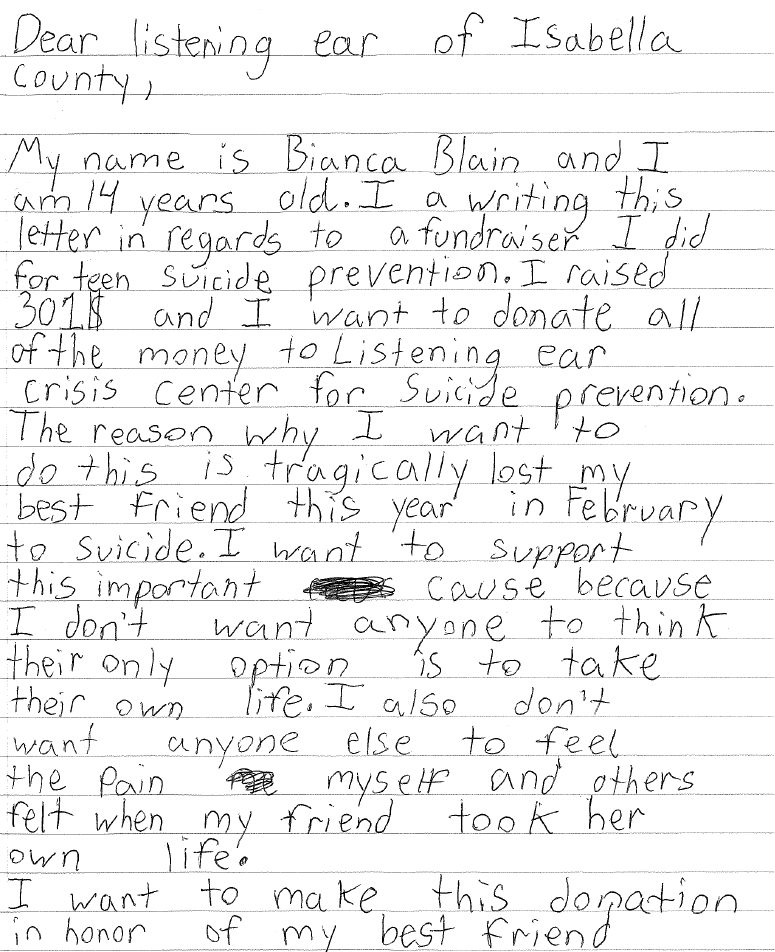 Dear listening ear of Isabella
County,
My name is Bianca Blain and I
am 14 years old. I a writing this
letter in regards to a fundraiser I did
for teen suicide prevention. I raised
301$ and I want to donate all
of the money to Listening ear
crisis center for Suicide prevention.
The reason why I want to
do this is tragically lost my
best friend this year in February
to suicide. I want to support
this important cause because
I don't want anyone to think
their only option is to take
their own life. I also don't
want anyone else to feel
the pain myself and others
felt when my friend took her
own life.
I want to make this donation
in honor of my best friend